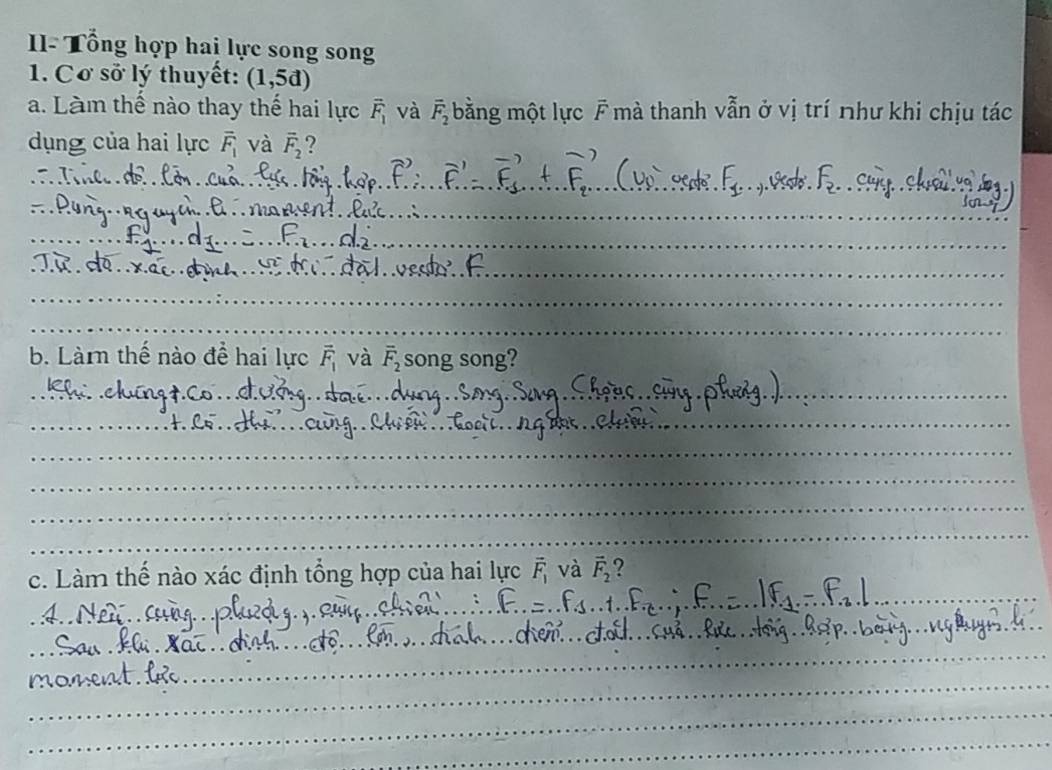 II- Tổng hợp hai lực song song
1. Cơ sở lý thuyết: (1,5đ)
a. Làm thế nào thay thế hai lực F⃗₁ và F⃗₂ bằng một lực F⃗ mà thanh vẫn ở vị trí như khi chịu tác
dụng của hai lực F⃗₁ và F⃗₂?
- Tính độ lớn của lực tổng hợp F⃗: F⃗ = F⃗₁ + F⃗₂ (vì vectơ F₁, vectơ F₂ cùng chiều và song
song)
- Dùng nguyên lí moment lực:
F₁.d₁ = F₂.d₂
Từ đó xác định vị trí đặt vectơ F
b. Làm thế nào để hai lực F⃗₁ và F⃗₂ song song?
Khi chúng + có đường tác dụng song song (hoặc cùng phương)
+ Có thể cùng chiều hoặc ngược chiều
c. Làm thế nào xác định tổng hợp của hai lực F⃗₁ và F⃗₂?
Nếu cùng phương, cùng chiều: F = F₁ + F₂; F = |F₁ - F₂|
Sau khi xác định độ lớn, điểm đặt của lực tổng hợp bằng nguyên lí
moment lực